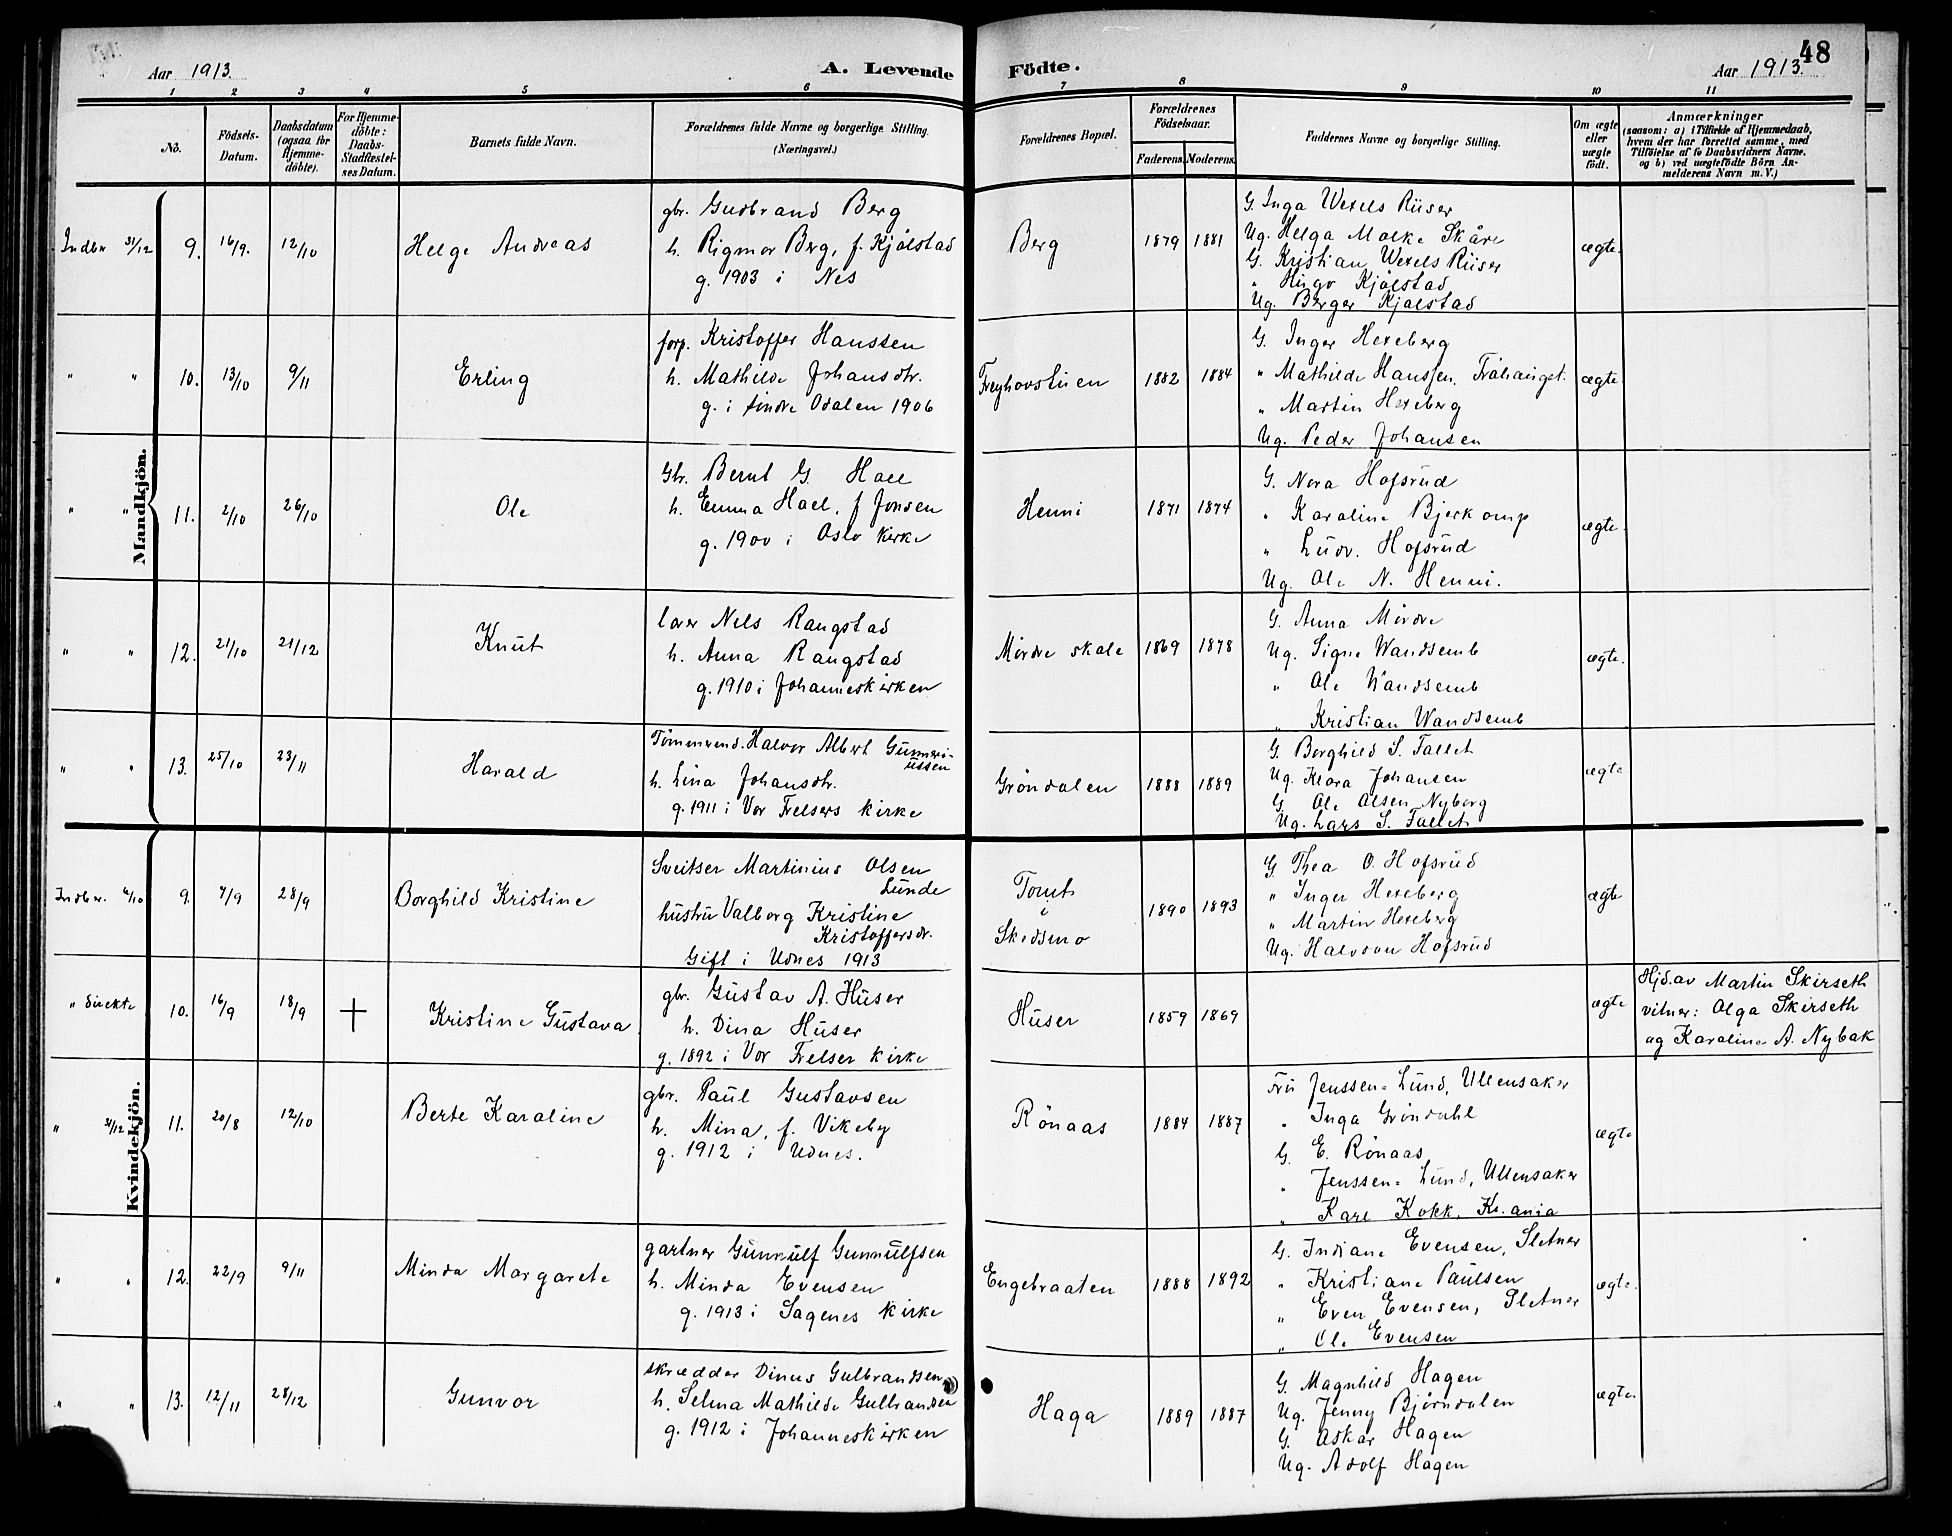 48
Aar 1913.
A. Levende Födte.
Aar 1913.
1 2 3 4 5 6 7 8 9 10 11
No.
Födsels-Datum.
Daabsdatum (ogsaa for Hjemme-döbte).
For Hjemme-döbte: Daabs-Stadfæstel-ses Datum.
Barnets fulde Navn.
Forældrenes fulde Navne og borgerlige Stilling.
(Næringsvei.)
Forældrenes Bopæl.
Forældrenes Födselsaar.
Faderens. Moderens.
Faddernes Navne og borgerlige Stilling.
Om ægte eller uægte födt.
Anmærkninger
(saasom: a) i Tilfælde af Hjemmedaab,
hvem der har forrettet samme, med
Tilföielse af to Daabsvidners Navne,
og b) ved uægtefödte Börn An-
melderens Navn m. V.)
Mandkjön.
Indber 31/12 9. 16/9. 12/10 Helge Andreas
gbr. Gudbrand Berg
h. Rigmor Berg, f. Kjølstad
g. 1903 i Nes
Berg 1879 1881
G. Inga Wexels Riiser
Ug. Helga Molke Skåre
G. Kristian Wexels Riiser
" Hugo Kjølstad
Ug. Berger Kjølstad
ægte.
" " 10. 13/10 9/11 Erling
forp. Kristoffer Hanssen
h. Mathilde Johansdtr.
g. i søndre Odalen 1906
Freyhovstuen 1882 1884
G. Inger Hexeberg
" Mathilde Hanssen, Fråhauget.
" Martin Hexeberg
Ug. Peder Johansen
ægte.
" " 11. 2/10 26/10 Ole
Gbr. Bernt G. Hael
h. Emma Hael, f Jonsen
g. 1900 i Oslo kirke
Henni 1871 1874
G. Nora Hofsrud
" Karoline Bjerkomp
" Ludv. Hofsrud
Ug. Ole N. Henni.
ægte.
" " 12. 21/10 21/12 Knut
lær Nils Rangstad
h. Anna Rangstad
g. 1910 i Johanneskirken
Mørdre skole 1869 1878
G. Anna Mørdre
Ug. Signe Wandsemb
" Ole Wandsemb
" Kristian Wandsemb
ægte.
" " 13. 25/10 23/11 Harald
Tømmermd. Halvor Albert Gunneri-
ussen
h. Lina Johansdtr.
g. 1911 i Vor Frelsers kirke
Grøndalen 1888 1889
G. Borghild S. Fallet
Ug. Klara Johansen
G. Ole Olsen Nyborg
Ug. Lars S. Fallet
ægte
Kvindekjön.
Indber. 6/10 9. 7/9 28/9 Borghild Kristine
Sveitser Martinius Olsen
Lunde
hustru Valborg Kristine
Kristoffersdr.
Gift i Udnes 1913
Tomt
i
Skedsmo 1890 1893
G Thea O. Hofsrud
" Inger Hexeberg
" Martin Hexeberg
Ug. Halvdan Hofsrud
ægte
" direkte 10. 16/9 18/9 + Kristine Gustava
gbr. Gustav A. Huser
h. Dina Huser
g. 1892 i Vor Frelser kirke
Huser 1859 1869
ægte
Hjd. av Martin Skirseth
vitner: Olga Skirseth
og Karoline A. Nybak
" 31/12 11. 20/8 12/10 Berte Karoline
gbr. Paul Gustavsen
h. Mina, f. Vikeby
g. 1912 i Udnes.
Rönaas 1884 1887
Fru Jenssen-Lund, Ullensaker
" Inga Grøndahl
G. E. Rönaas
" Jenssen-Lund, Ullensaker
" Karl Kokk, Kr.ania
ægte
" " 12. 22/9 9/11 Minda Margarete
gartner Gunnulf Gunnulfsen
h. Minda Evensen
g. 1913 i Sagenes kirke
Engebraaten 1888 1892
G. Indiane Evensen, Sletner
" Kristiane Paulsen
" Even Evensen, Sletner
" Ole Evensen
ægte.
" " 13. 12/11 28/12 Gunvor
skrædder Dinus Gulbrandsen
h. Selma Mathilde Gulbrandsen
g. 1912 i Johanneskirken
Haga 1889 1887
G. Magnhild Hagen
Ug. Jenny Bjørndalen
G. Oskar Hagen
Ug. Adolf Hagen
ægte.